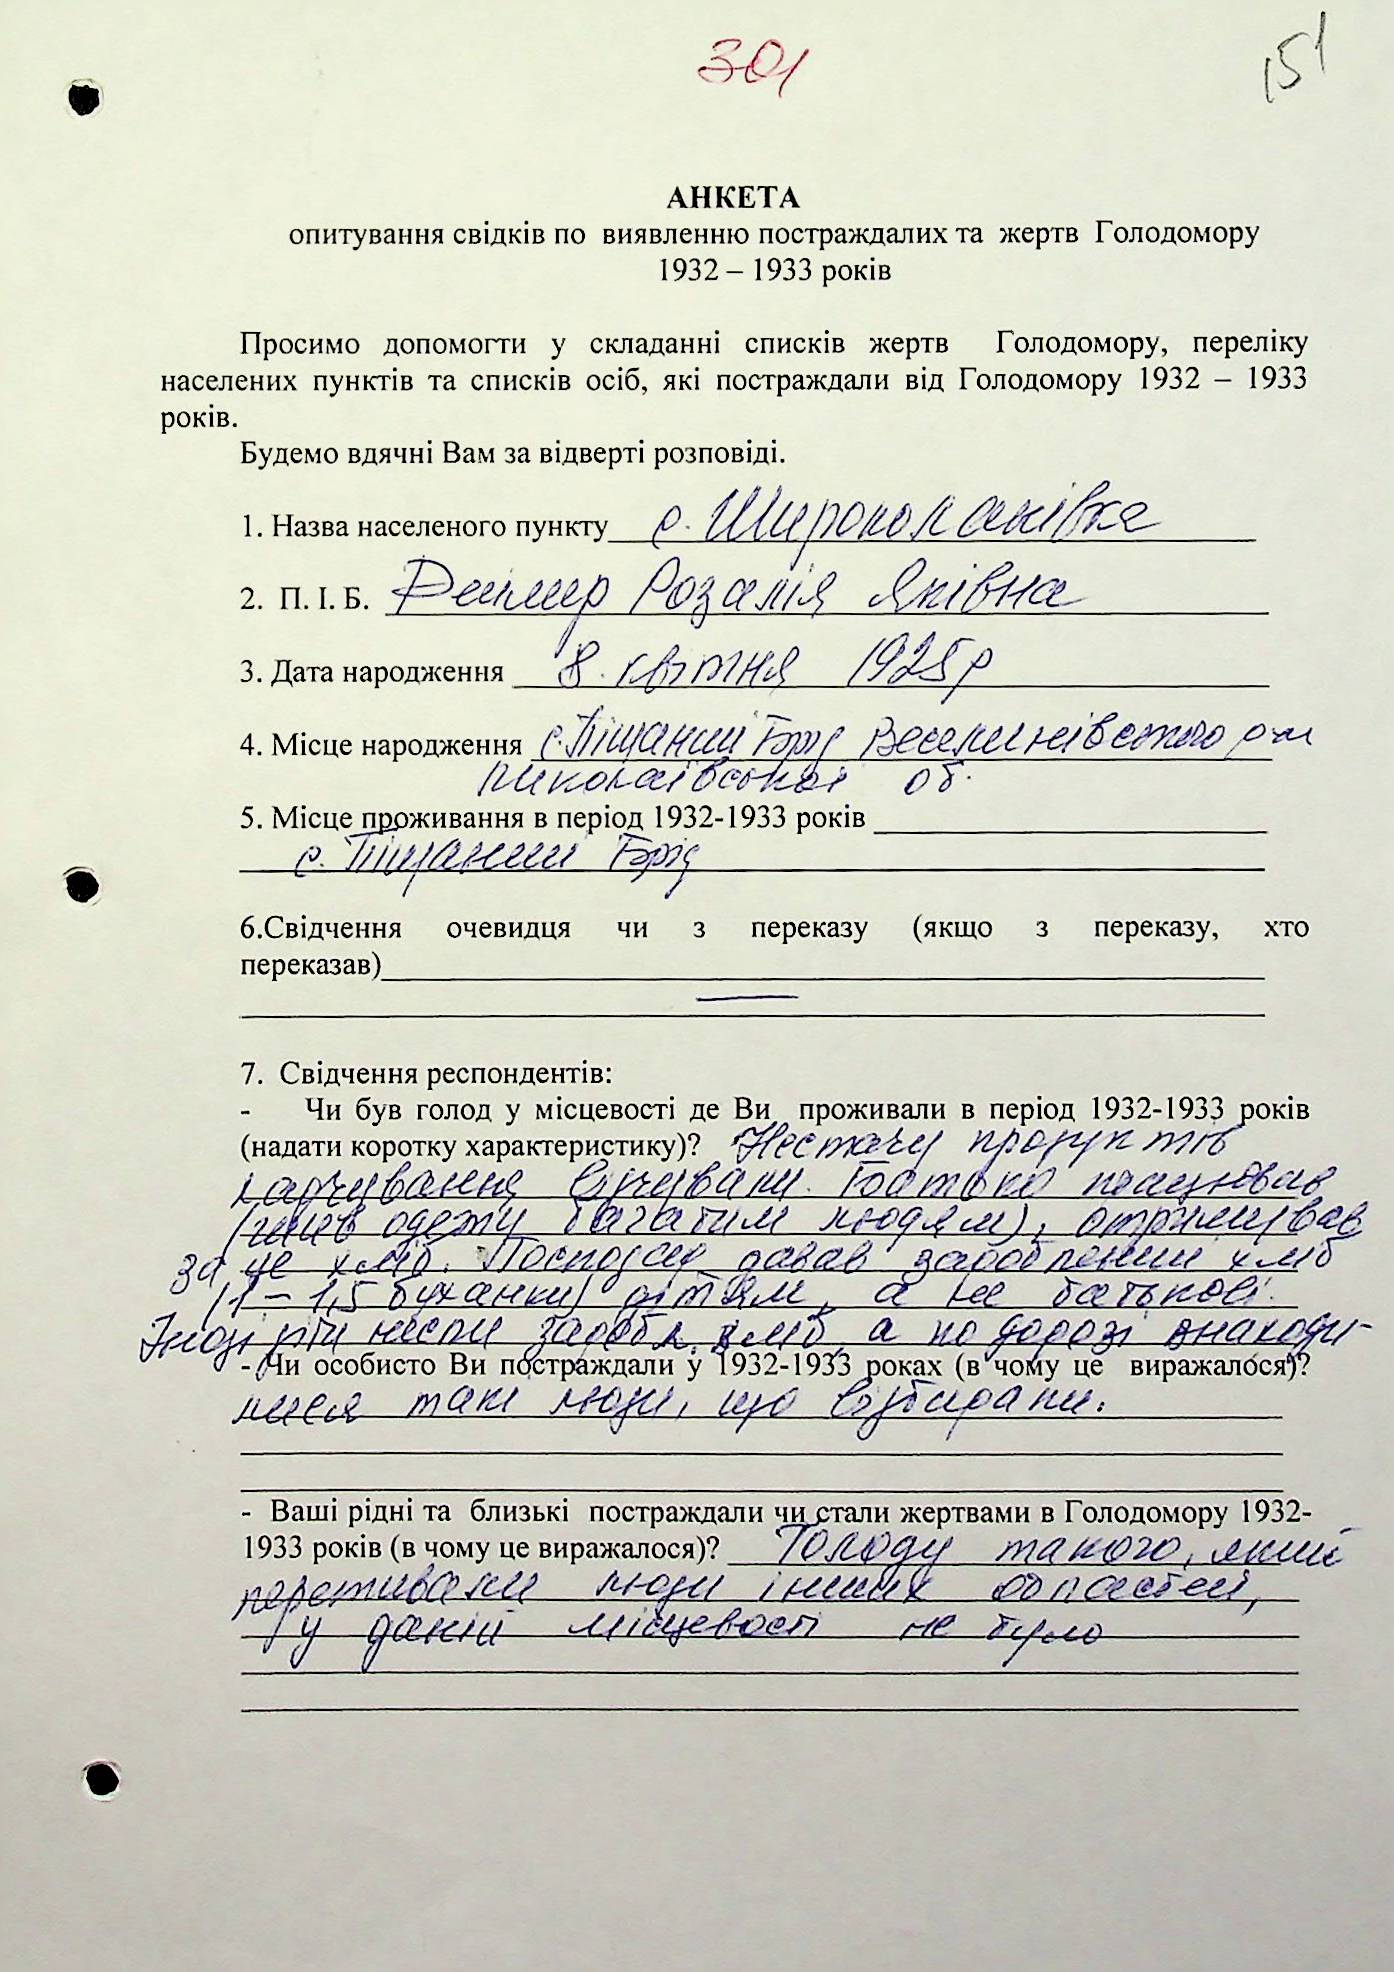 301
151
АНКЕТА
опитування свідків по виявленню постраждалих та жертв Голодомору
1932 – 1933 років
Просимо допомогти у складанні списків жертв Голодомору, переліку
населених пунктів та списків осіб, які постраждали від Голодомору 1932 – 1933
років.
Будемо вдячні Вам за відверті розповіді.
1. Назва населеного пункту с. Широколанівка
2. П. І. Б. Розалія Яківна
3. Дата народження 8 квітня 1925р
4. Місце народження с. Піщаний Брід Веселинівського р-н
Миколаївської об.
5. Місце проживання в період 1932-1933 років
с. Піщаний Брід
6.Свідчення очевидця чи з переказу (якщо з переказу, хто
переказав)
7. Свідчення респондентів:
- Чи був голод у місцевості де Ви проживали в період 1932-1933 років
(надати коротку характеристику)? Нестачу продуктів
харчування відчували. Батько працював
(шив одежу багатим людям), отримував
за це хліб. Господар давав зароблений хліб
(1 – 1,5 буханки) дітям, а не батькові.
Іноді діти несли заробл. хліб, а по дорозі знаходи-
- Чи особисто Ви постраждали у 1932-1933 роках (в чому це виражалося)?
лися такі люди, що відбирали.
- Ваші рідні та близькі постраждали чи стали жертвами в Голодомору 1932-
1933 років (в чому це виражалося)? Голоду такого, який
переживали люди інших областей,
у даній місцевості не було